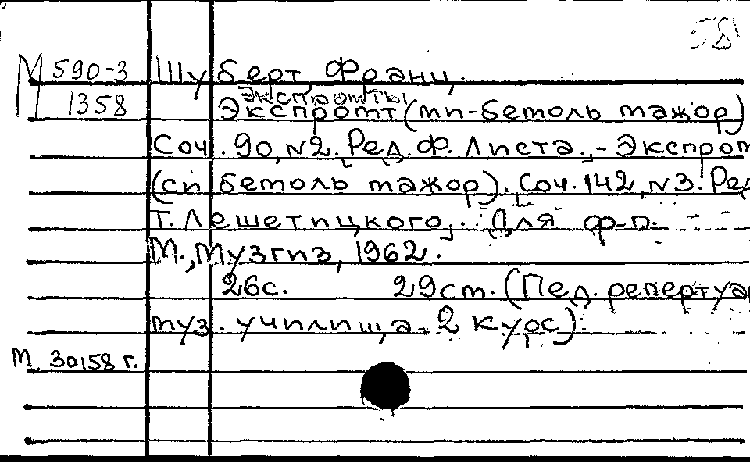 58
М 590-3 Шуберт Франц.
1358 Экспромты
Экспромт (ми-бемоль мажор)
Соч. 90, N2. Ред. Ф. Листа. - Экспром
(си бемоль мажор). Соч. 142, N3. Ред
Т. Лешетицкого. Для ф-п.
М., Музгиз, 1962.
26с. 29см. (Пед. репертуа
муз. училища. 2 курс).
М. 30158 г.